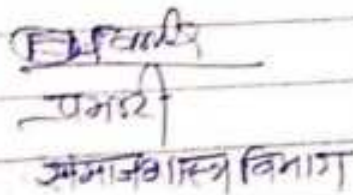 प्रभारी
समाजशास्त्र विभाग